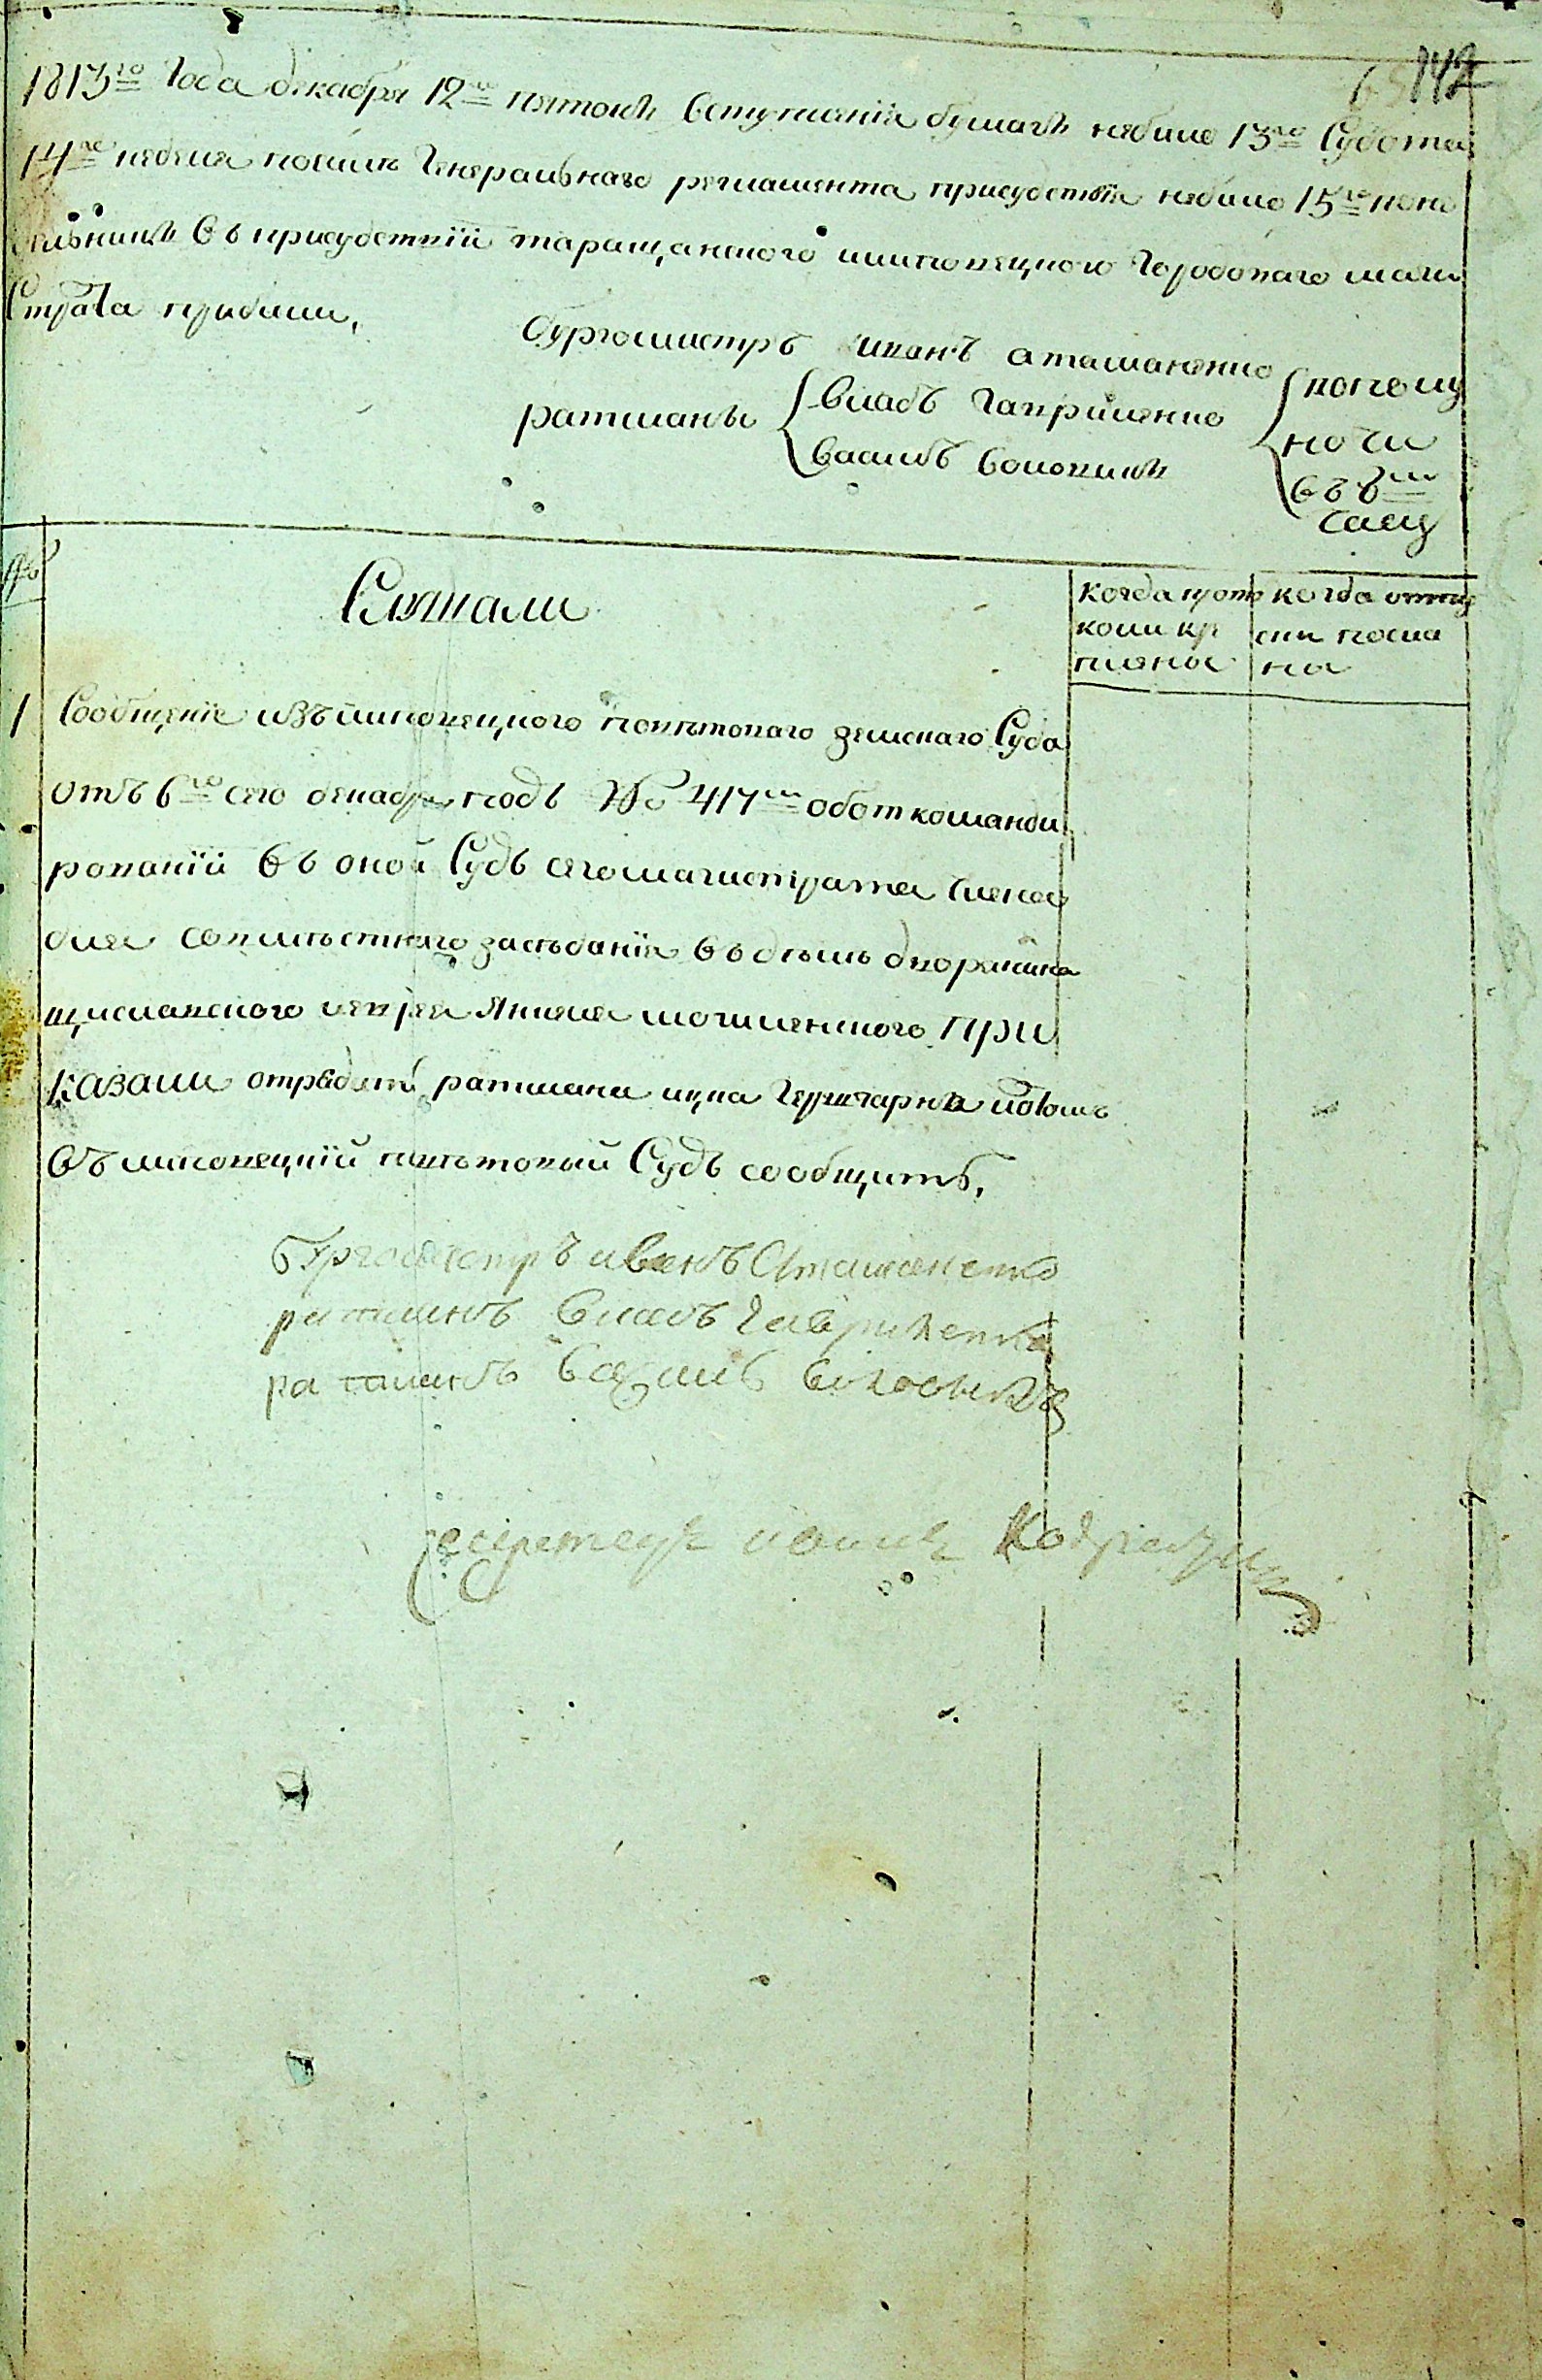 142
1813го Года декабря 12го пятокъ вступления бумагъ небыло 13го Субота
14го неделя посилѣ Генеральнаго регламента присудствiя небыло 15го поне
дельникъ въ присудствiи таращанского липовецкого Городоваго маги
Страта прибыли,
бургомистръ иванъ атаманенко
ратманы { владъ гавриленко
василь воловикъ
пополу
ночи
въ 8м
часу
№
Слушали
когда прото
коли кр
плены
когда отпу
ски посла
ны
1 Сообщенiе изъ липовецкого повѣтоваго земскаго Суда
отъ 6го сего декабря подъ № 417м оботкоманди
рованiи въ оной Судъ сегомагистрата члена
для совмѣстнаго заседанiя въ дѣлѣ дворянина
еврея могиленского При
казали отрядить ратмана
въ липовецкiй повѣтовый Судъ сообщить,
бургомистръ иванъ Атаманенко
ратманъ владъ гавриленко
ратманъ василь воловикъ
Секретарь